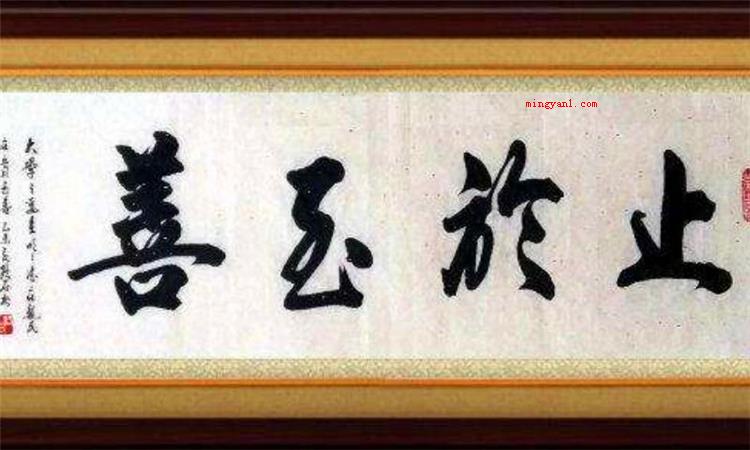 止於至善
大學之道在明明德在親民
在止於至善乙未
mingyanl.com